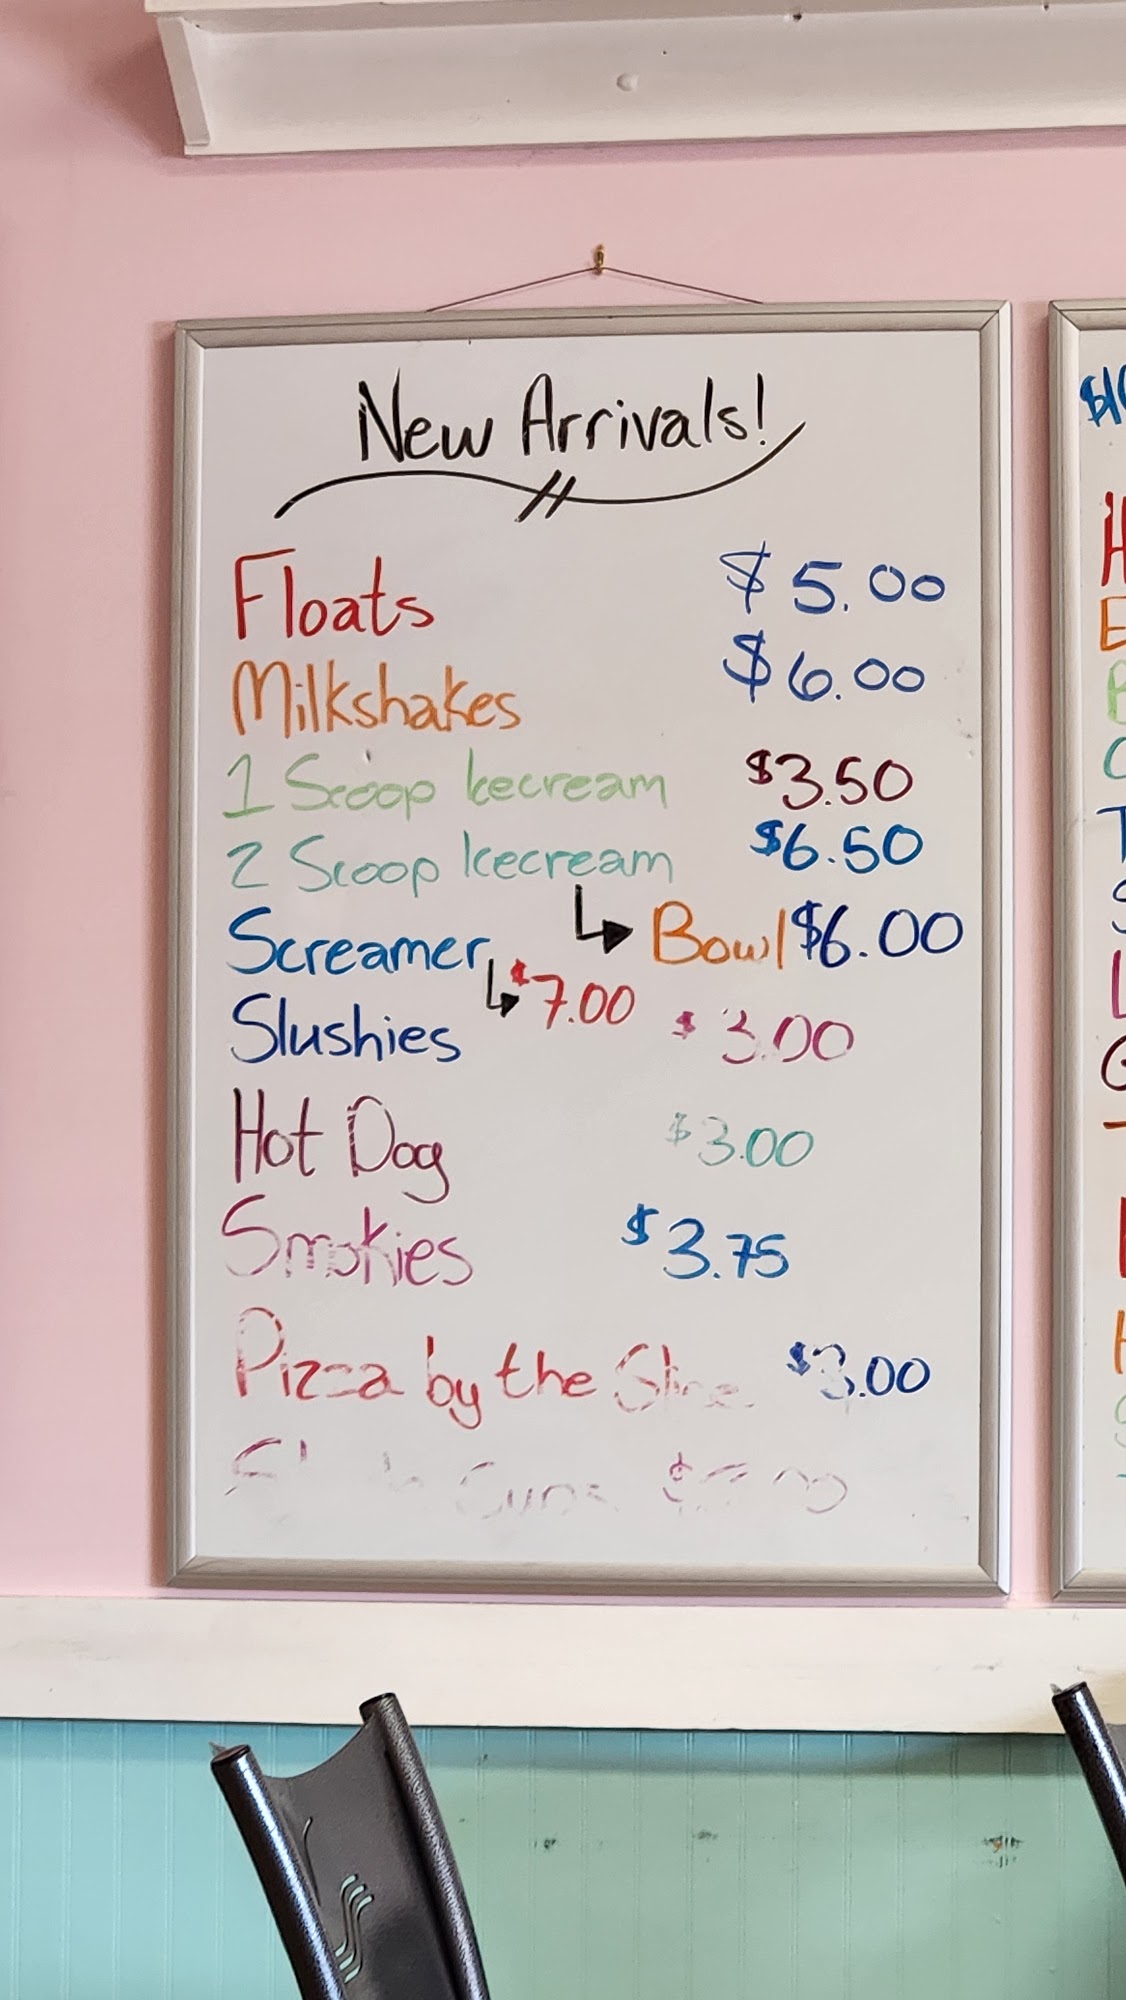 New Arrivals!
Floats $5.00
Milkshakes $6.00
1 Scoop Icecream $3.50
2 Scoop Icecream $6.50
Bowl $6.00
Screamer
$7.00
Slushies $3.00
Hot Dog $3.00
Smokies $3.75
Pizza by the Slice $3.00
$10